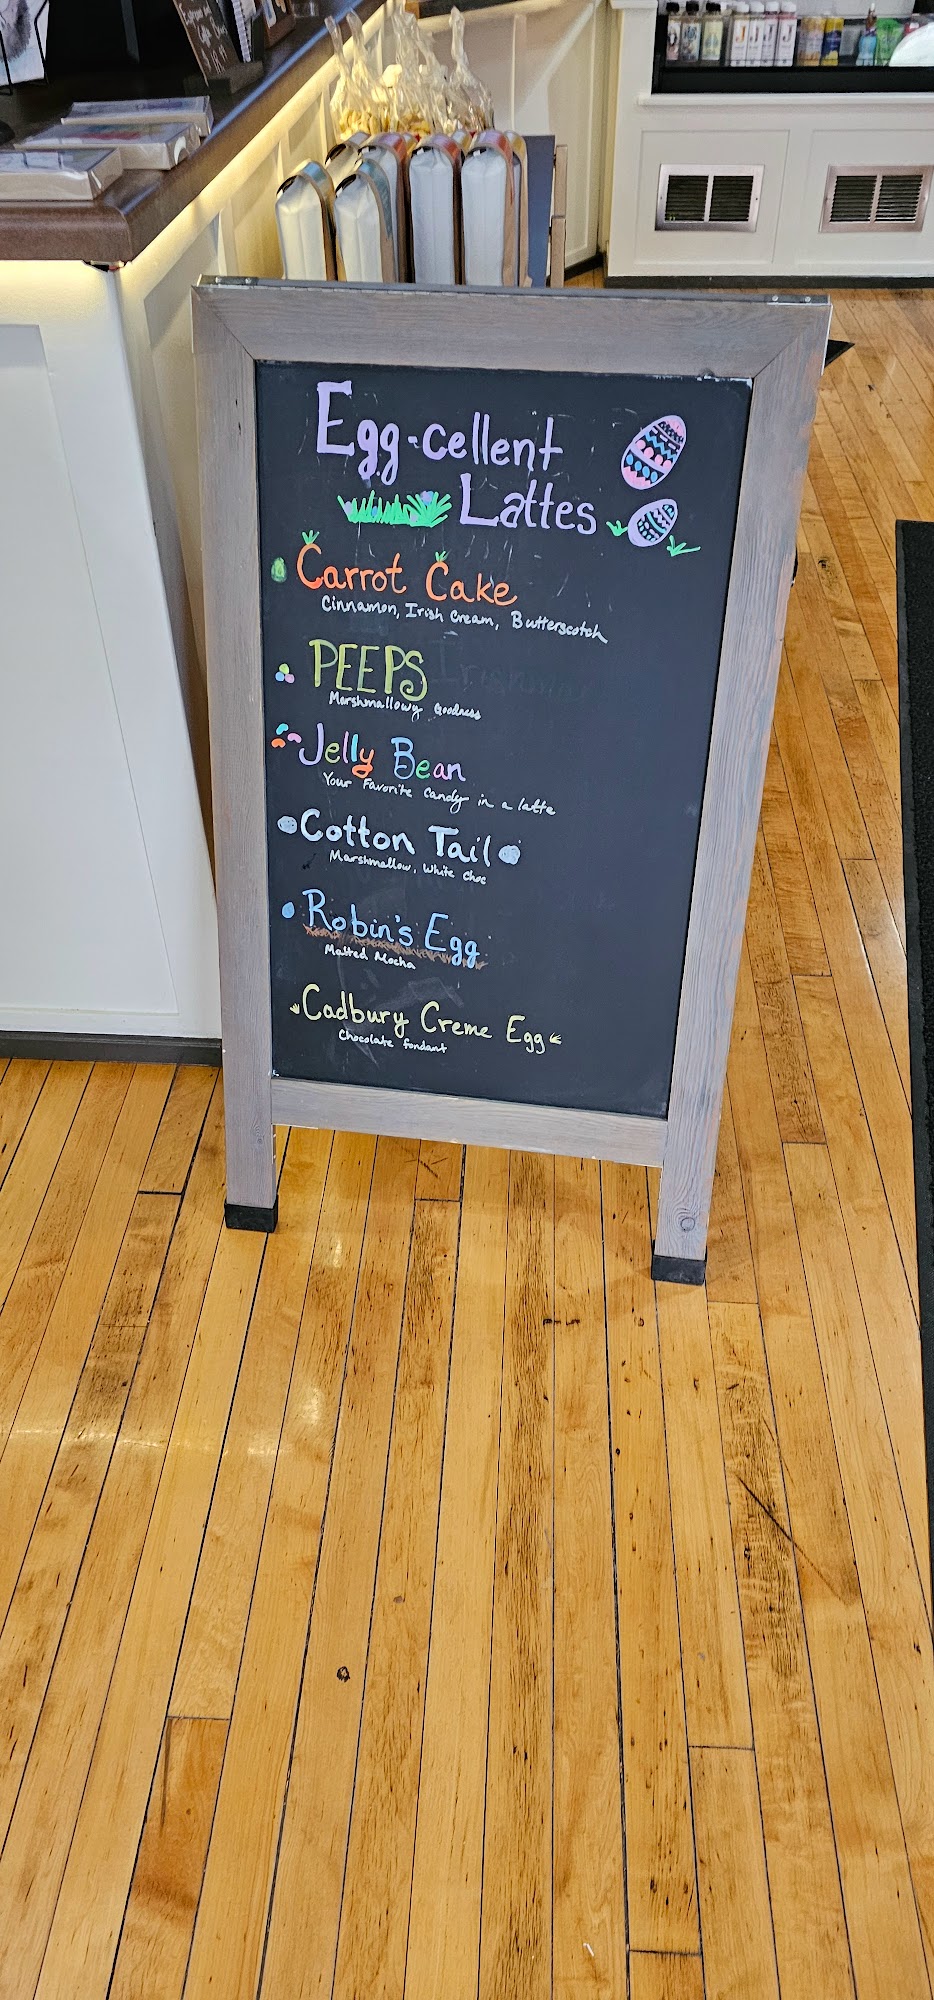 Egg-cellent
Lattes
Carrot Cake
Cinnamon, Irish Cream, Butterscotch
PEEPS
Marshmallowy Goodness
Jelly Bean
Your Favorite Candy in a latte
Cotton Tail
Marshmallow, White Choc
Robin's Egg
Malted Mocha
Cadbury Creme Egg
Chocolate fondant